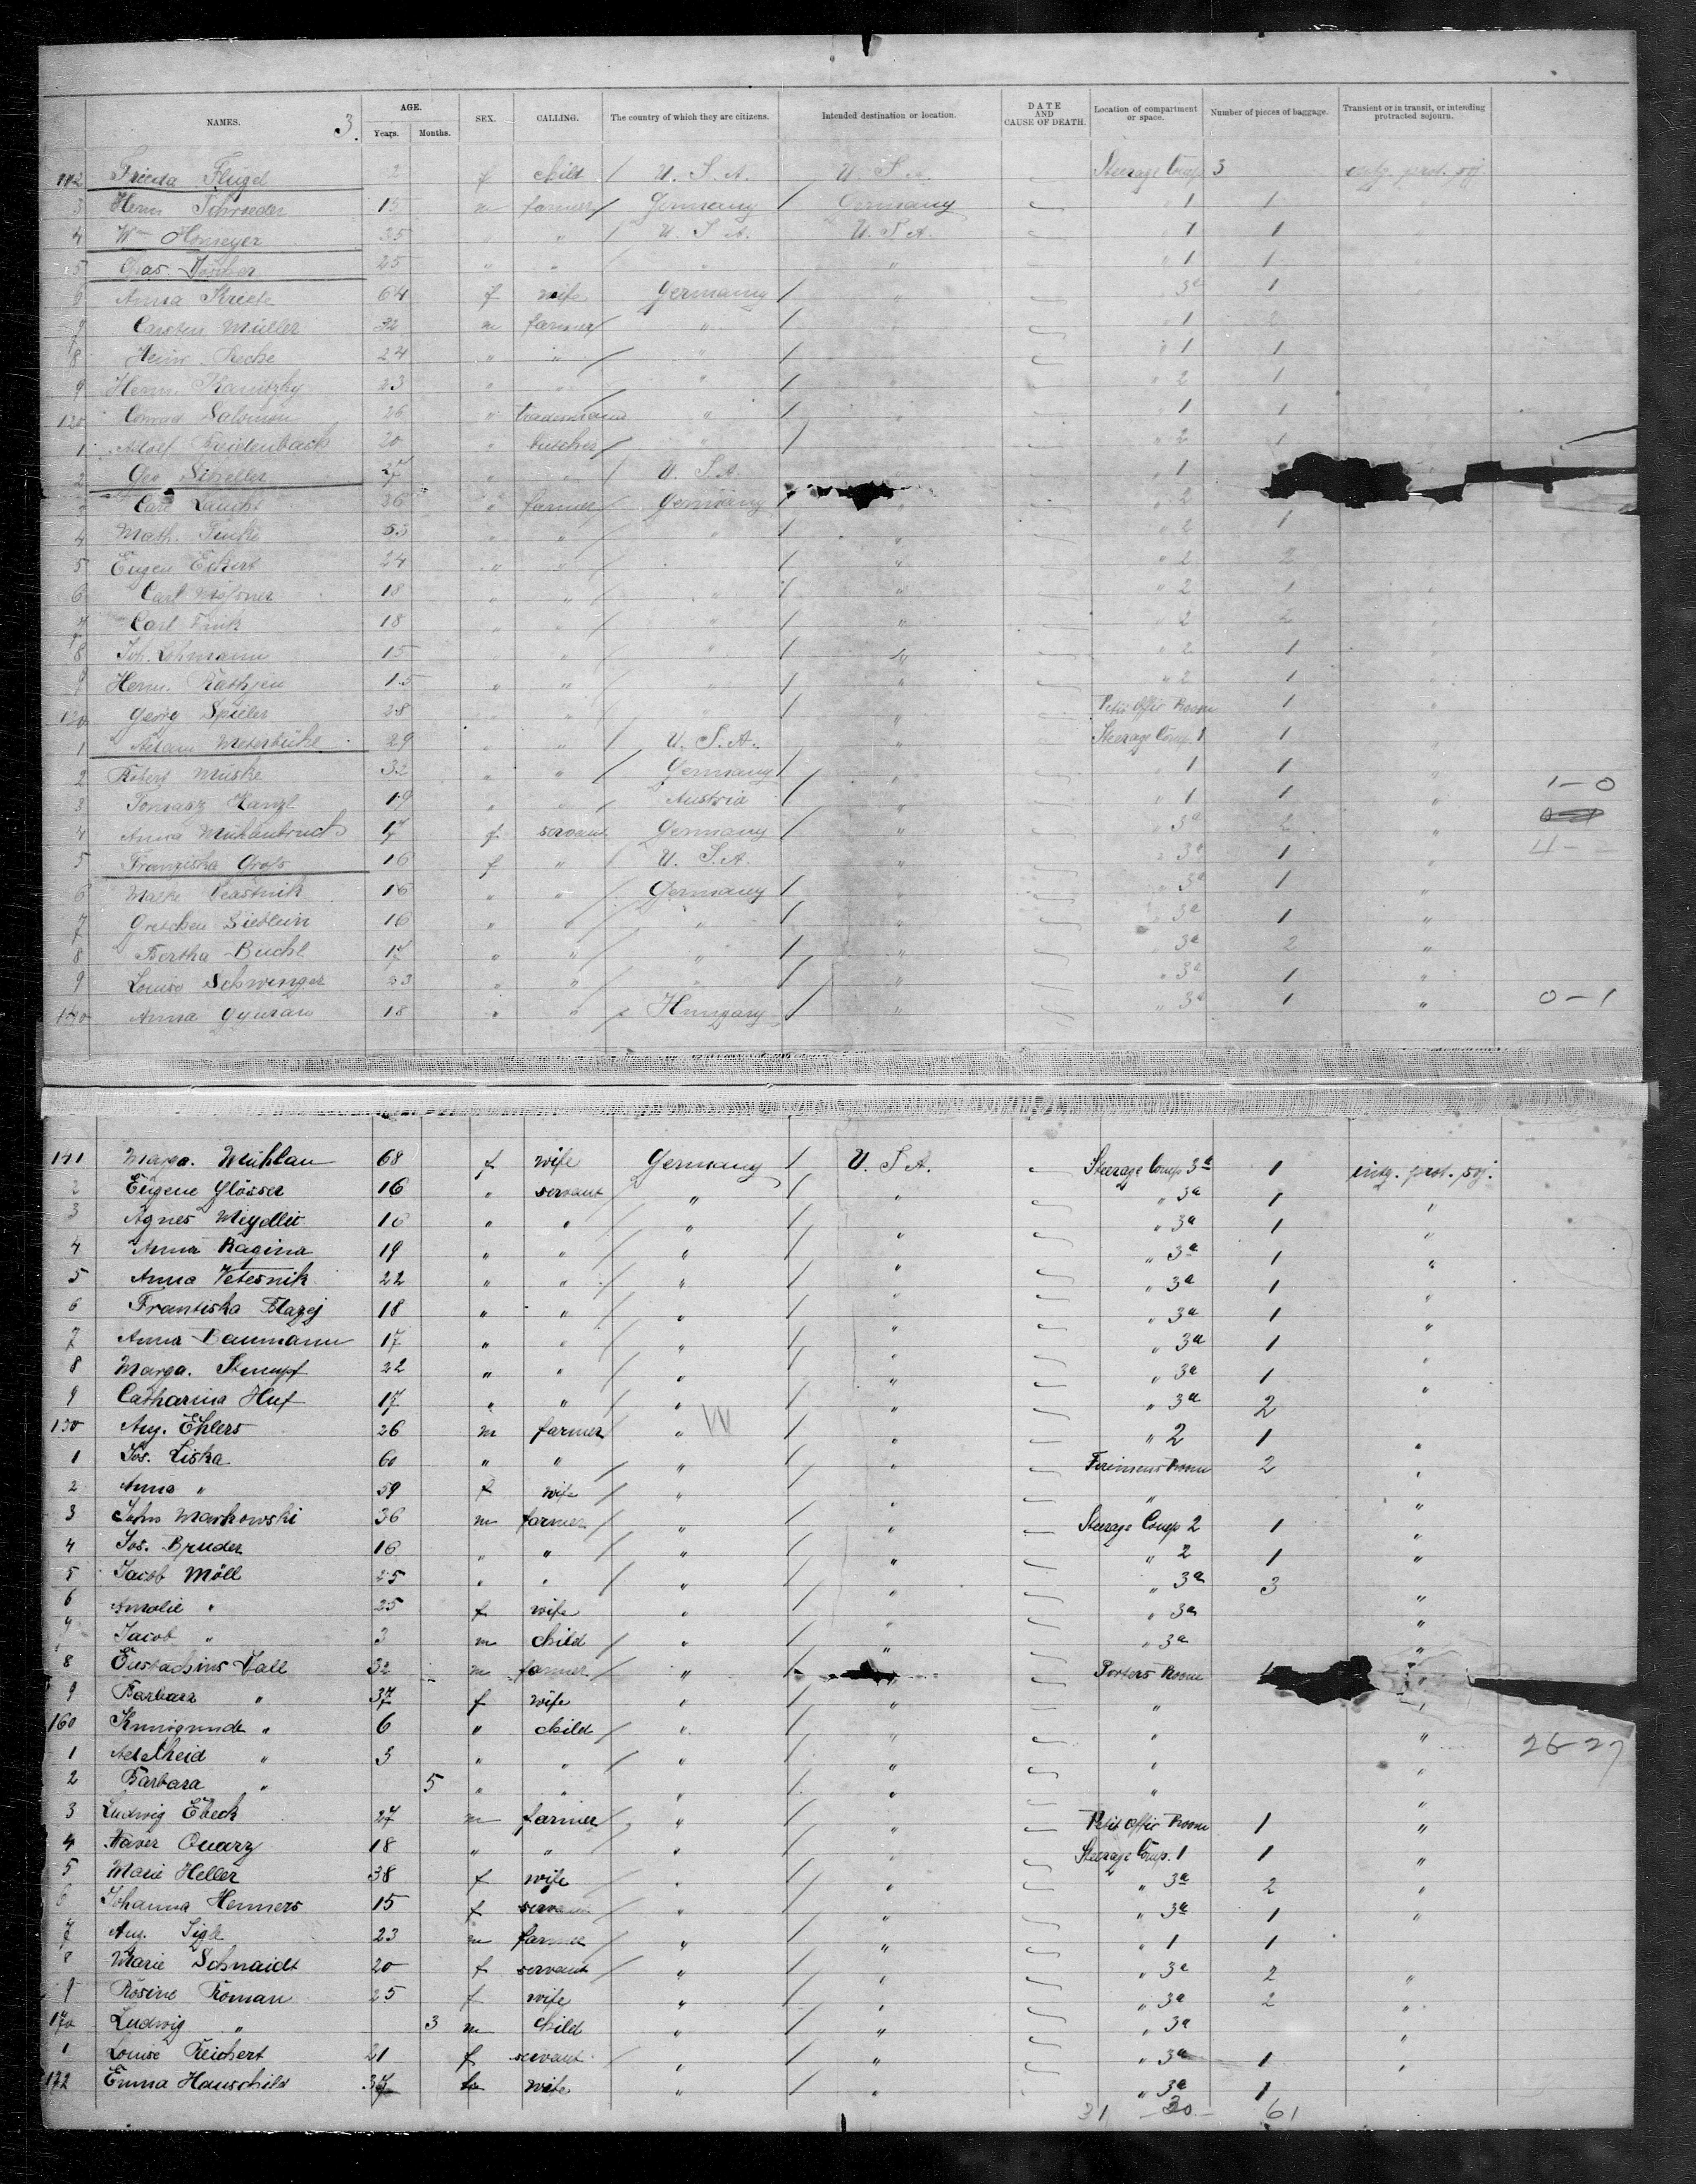 NAMES. 3. AGE. Years. Months. SEX. CALLING. The country of which they are citizens. Intended destination or location. DATE AND CAUSE OF DEATH. Location of compartment or space. Number of pieces of baggage. Transient or in transit, or intending protracted sojourn.
Frieda Flugel 2 f child / U. S. A. U. S. A. Steerage Comp 3 intg. prot. soj.
3 Herm Schroeder 15 m farmer / Germany / Germany " 1 1
4 Wm Homeyer 35 " " / U. S. A. U. S. A. " 1 1
5 25 " " " " " 1 1
6 Anna 64 f wife Germany / " 3a 1
7 Carsten Müller 32 m farmer / " / " " 1 2
8 Heinr. 24 " " / " / " " 1 1
9 Herm. 23 " " " / " " 2 1
Conrad Salomon 26 " " / " " 1 1
1 Adolf Breidenbach 20 " butcher / " / " 2 1
2 Geo Scheller 27 " " / U. S. A. " " 1
Carl 36 " farmer / Germany / " " 2
4 Math. 53 " " / " / " " 2 1
5 Eugen Eckert 24 " " / / " " 2 2
6 Carl 18 " " / " / " " 2 1
7 Carl 18 " " / " / " " 2 2
8 Joh. Lehmann 15 " " / " / " " 2 1
9 Herm. Rathjen 15 " " / " / " " 2 1
Georg Spieler 28 " " / " / " Petit Offic Room 1
1 Adam 29 " " / U. S. A. " Steerage Comp. 1 1
2 Robert Muske 32 " " / Germany / " " 1 1 "
3 Tomasz 19 " " Austria / " " 1 1 " 1-0
4 Anna Mühlenbruch 17 f servant Germany / " " 3a 2 "
5 Franziska Gross 16 f " U. S. A. " " 3a 1
6 16 " " Germany / " " 3a 1 "
7 Gretchen Siedlein 16 " " / " / " " 3a 1 "
8 Bertha Buchl 17 " " / " / " " 3a 2 "
9 Louise Schwenger 23 " " / " / " " 3a 1 "
140 Anna 18 " " / Hungary / " " 3a 1 " 0-1
141 Marga. Mühlau 68 f wife Germany / U. S. A. Steerage Comp 3a 1 intg. prot. soj.
2 Eugene Glösser 16 " servant / " / " " 3a 1 "
3 Agnes 16 " " / " / " " 3a 1 "
4 Anna Ragina 19 " " / " / " " 3a 1 "
5 Anna Vetesnik 22 " " / " / " " 3a 1 "
6 Frantiska Blazej 18 " " / " / " " 3a 1 "
7 Anna Baumann 17 " " / " / " " 3a 1 "
8 Marga. Stumpf 22 " " / " / " " 3a 1 "
9 Catharina Huf 17 " " / " / " " 3a 2 "
150 Aug. Ehlers 26 m farmer / " / " " 2 1 "
1 Jos. Liska 60 " " / " / " Firemens Room 2 "
2 Anna " 59 f wife / " / " " "
3 John Markowski 36 m farmer / " / " Steerage Comp 2 1 "
4 Jos. Bruder 16 " " / " / " " 2 1 "
5 Jacob Möll 25 " " / " / " " 3a 3 "
6 Amalie " 25 f wife " / " " 3a "
7 Jacob " 3 m child / " / " " 3a "
8 Eustachius Vall 32 m farmer " " Porters Room 1
9 Barbara " 37 f wife " / " " "
160 Kunigunde " 6 " child / " / " " "
1 Adelheid " 3 " " / " / " " " 26-27
2 Barbara " 5 " " / " / " " "
3 Ludwig Ebeck 27 m farmer / " / " Petit Offic Room 1 "
4 Xaver Quarz 18 " " " / " Steerage Comp. 1 1 "
5 Marie Heller 38 f wife " / " " 3a 2 "
6 Johanna Henners 15 f servant " / " " 3a 1 "
7 Aug. Sigle 23 m farmer " / " " 1 1
8 Marie Schnaidt 20 f servant " / " " 3a 2 "
9 Rosine Roman 25 f wife " / " " 3a 2 "
170 Ludwig " 3 m child " / " " 3a "
1 Louise Reichert 21 f servant " / " " 3a 1 "
172 Emma Hauschild 37 wife " / " " 3a 1
31 30 61